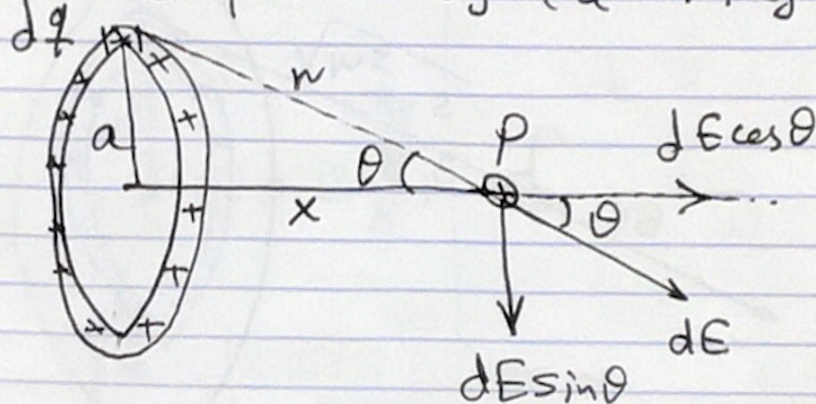 dq
r
P
dE cos θ
a
θ
x
θ
dE
dE sin θ